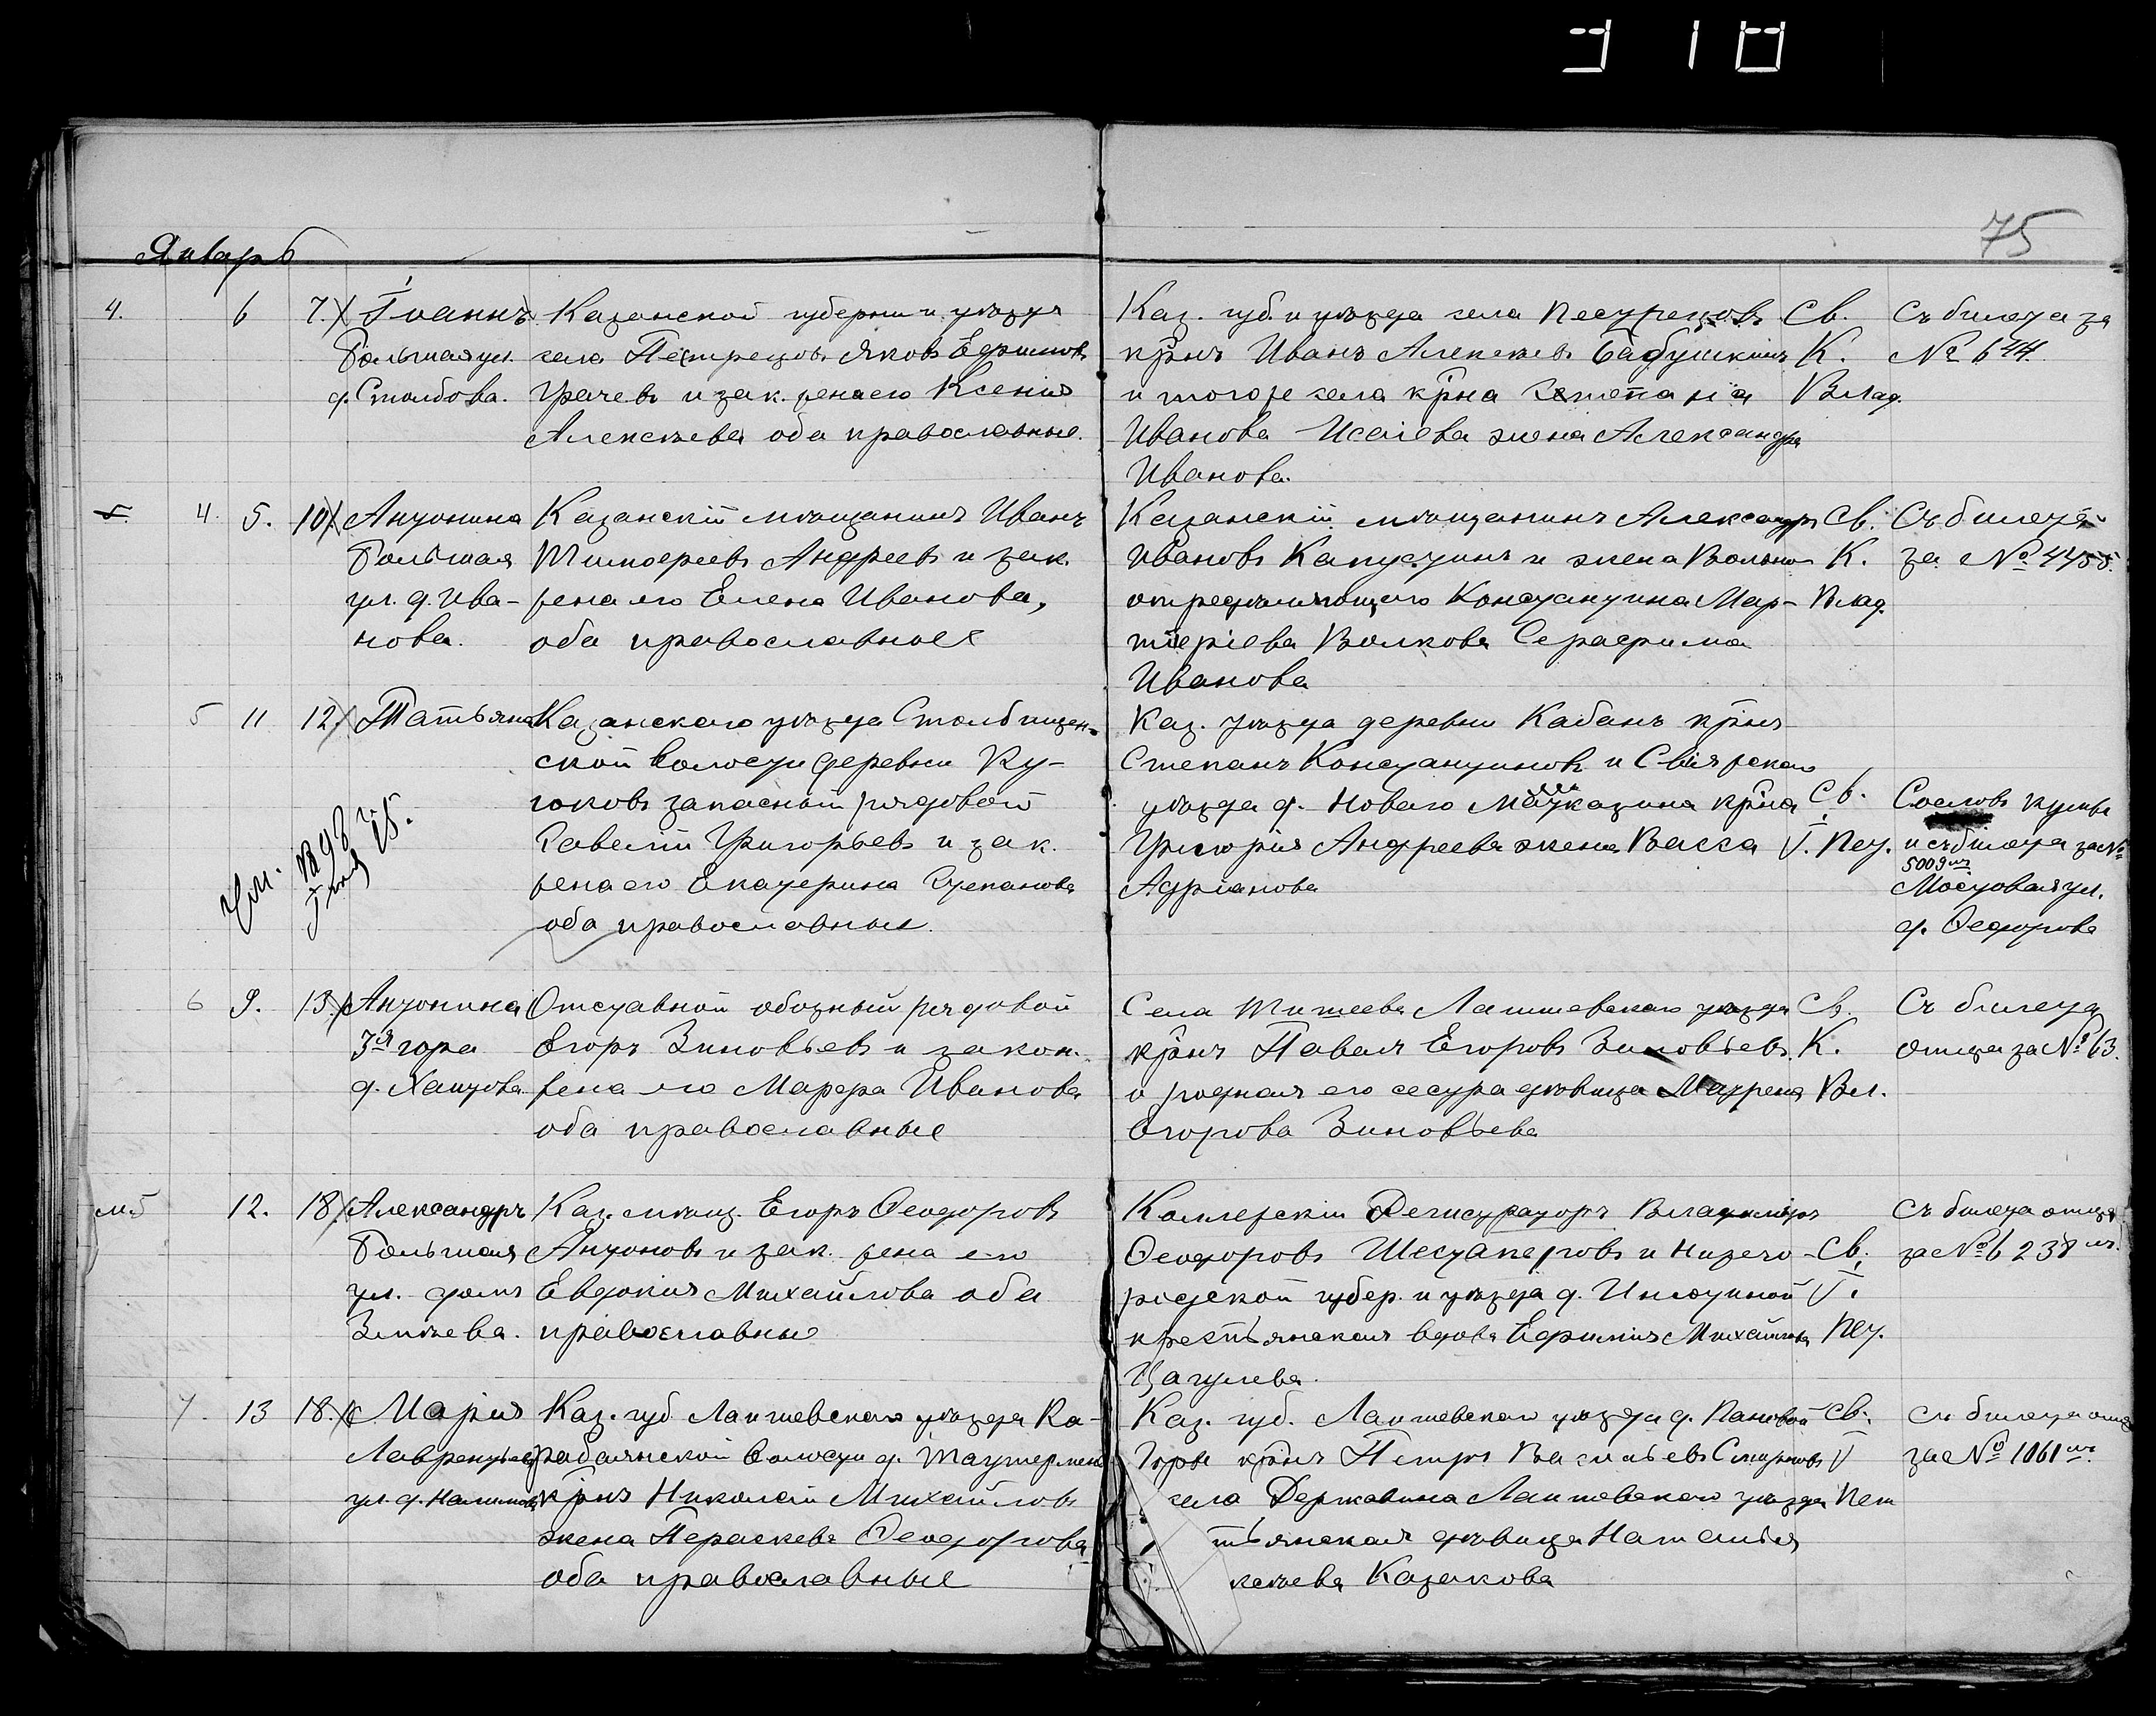 310
75
Январь
4. 6 7. Іоаннъ
Большая ул.
д. Столбова.
Казанской губерніи и уѣзда
села Пестрецовъ Яковъ Ефимовъ
Грачевъ и зак. жена его Ксенія
Алексѣева оба православные.
Каз. губ. и уѣзда села Пестрецовъ
кр̄нъ Иванъ Алексѣевъ Бабушкинъ
и того же села кр̄на Степана
Иванова Исаева жена Александра
Иванова.
Св.
К.
Влад.
Съ билета за
№ 644.
5. 4. 5. 10. Антонина
Большая
ул. д. Ива-
нова.
Казанскій мѣщанинъ Иванъ
Тимофеевъ Андреевъ и зак.
жена его Елена Иванова,
оба православные
Казанскій мѣщанинъ Александръ
Ивановъ Капустинъ и жена Вольно-
опредѣляющаго Константина Мар-
теріева Волкова Серафима
Иванова
Св.
К.
Влад.
Съ билета
за № 4455.
5 11 12. Татьяна
Казанскаго уѣзда Столбищен-
ской волости деревни Ку-
юковъ запасный рядовой
Савелій Григорьевъ и зак.
жена его Екатерина Степанова
оба православные.
Каз. уѣзда деревни Кабанъ кр̄нъ
Степанъ Константиновъ и Свіяжскаго
уѣзда д. Новаго кр̄на
Григорія Андреева жена Васса
Адріанова
Св.
І. Пет.
купы
и съ билета за №
5009мъ
Мостовая ул.
д. Ѳедорова
6 9. 13. Антонина
3я гора
д. Хайтова
Отставной обозный рядовой
Егоръ Зиновьевъ и закон.
жена его Марфа Иванова
оба православные
Села Ташеева Лаишевскаго уѣзда
кр̄нъ Павелъ Егоровъ Зиновьевъ
и родная его сестра дѣвица Матрена
Егорова Зиновьева
Св.
К.
Вл.
Съ билета
отца за № 63.
м5 12. 18. Александръ
Большая
ул. домъ
Змѣева.
Каз. мѣщ. Егоръ Ѳеодоровъ
Антоновъ и зак. жена его
Евдокія Михайлова оба
православные
Коллежскій Регистраторъ Владиміръ
Ѳеодоровъ Шестаперовъ и Нижего-
родской губер. и уѣзда д.
крестьянская вдова Ефимія Михайлова
Цагулева.
Св.
І.
Пет.
Съ билета отца
за № 6238мъ.
7. 13 18. Марія
Лаврентьев.
ул. д.
Каз. губ. Лаишевскаго уѣзда Ка-
рабаянской волости д. Таутермень
кр̄нъ Николай Михайловъ
жена Параскева Ѳеодорова
оба православные
Каз. губ. Лаишевскаго уѣзда д. Пановой
Горы кр̄нъ Петръ Васильевъ Смирновъ
села Державина Лаишевскаго уѣзда
тьянская дѣвица Наталія
ксѣева Казакова
Св.
І
Пет
Съ билета отца
за № 1061мъ.